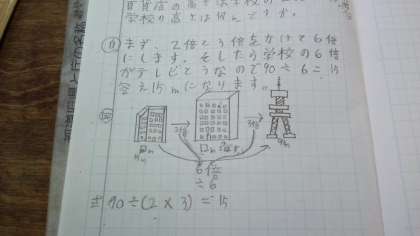 学校の高さは何mですか。
まず、2倍と3倍をかけて6倍
にします。そしたら学校の6倍
がテレビとうなので90÷6=15
答え15mになります。
2倍
3倍
□m
90m
6倍
÷6
式 90÷(2×3)=15